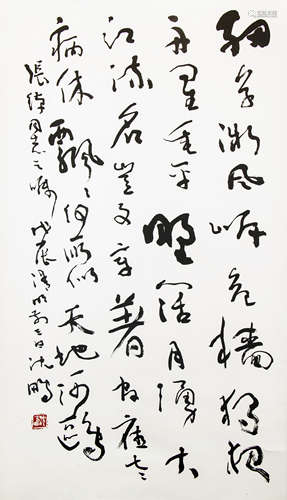 細草微風岸危檣獨夜
舟星垂平野闊月湧大
江流名豈文章著官應老
病休飄〻何所似天地一沙鷗
張緯同志之嘱 戊辰清明前三日沈鵬